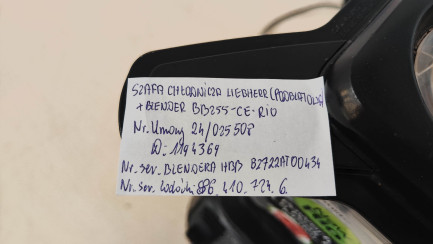 SZAFA CHŁODNICZA LIEBHERR (PODBLATOWA)
+ BLENDER BB255-CE-RIO
Nr. Umowy 24/025508
ID: 1194369
Nr. ser. BLENDERA HBB 82722AT00434
Nr. ser. Lodówki: 86. 410. 724. 6.